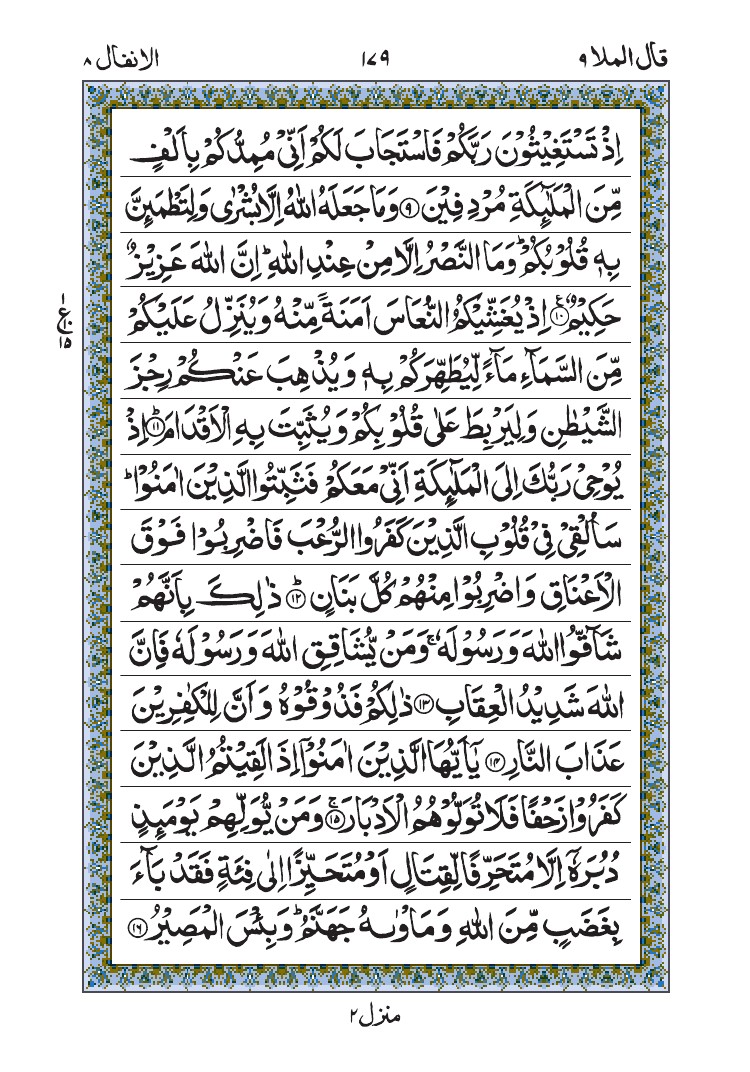 قال الملا ۹
۱۷۹
الانفال ۸
اِذْ تَسْتَغِيْثُوْنَ رَبَّكُمْ فَاسْتَجَابَ لَكُمْ اَنِّىْ مُمِدُّكُمْ بِاَلْفٍ
مِّنَ الْمَلٰٓئِكَةِ مُرْدِفِيْنَ ﴿۹﴾ وَمَا جَعَلَهُ اللّٰهُ اِلَّا بُشْرٰى وَلِتَطْمَئِنَّ
بِهٖ قُلُوْبُكُمْ ؕ وَمَا النَّصْرُ اِلَّا مِنْ عِنْدِ اللّٰهِ ؕ اِنَّ اللّٰهَ عَزِيْزٌ
حَكِيْمٌ ﴿۱۰﴾ اِذْ يُغَشِّيْكُمُ النُّعَاسَ اَمَنَةً مِّنْهُ وَيُنَزِّلُ عَلَيْكُمْ
ع
۱۵
مِّنَ السَّمَآءِ مَآءً لِّيُطَهِّرَكُمْ بِهٖ وَيُذْهِبَ عَنْكُمْ رِجْزَ
الشَّيْطٰنِ وَلِيَرْبِطَ عَلٰى قُلُوْبِكُمْ وَيُثَبِّتَ بِهِ الْاَقْدَامَ ؕ﴿۱۱﴾ اِذْ
يُوْحِىْ رَبُّكَ اِلَى الْمَلٰٓئِكَةِ اَنِّىْ مَعَكُمْ فَثَبِّتُوا الَّذِيْنَ اٰمَنُوْا ؕ
سَاُلْقِىْ فِىْ قُلُوْبِ الَّذِيْنَ كَفَرُوا الرُّعْبَ فَاضْرِبُوْا فَوْقَ
الْاَعْنَاقِ وَاضْرِبُوْا مِنْهُمْ كُلَّ بَنَانٍ ؕ﴿۱۲﴾ ذٰلِكَ بِاَنَّهُمْ
شَآقُّوا اللّٰهَ وَرَسُوْلَهٗ ۚ وَمَنْ يُّشَاقِقِ اللّٰهَ وَرَسُوْلَهٗ فَاِنَّ
اللّٰهَ شَدِيْدُ الْعِقَابِ ﴿۱۳﴾ ذٰلِكُمْ فَذُوْقُوْهُ وَاَنَّ لِلْكٰفِرِيْنَ
عَذَابَ النَّارِ ﴿۱۴﴾ يٰۤاَيُّهَا الَّذِيْنَ اٰمَنُوْۤا اِذَا لَقِيْتُمُ الَّذِيْنَ
كَفَرُوْا زَحْفًا فَلَا تُوَلُّوْهُمُ الْاَدْبَارَ ۚ﴿۱۵﴾ وَمَنْ يُّوَلِّهِمْ يَوْمَئِذٍ
دُبُرَهٗۤ اِلَّا مُتَحَرِّفًا لِّقِتَالٍ اَوْ مُتَحَيِّزًا اِلٰى فِئَةٍ فَقَدْ بَآءَ
بِغَضَبٍ مِّنَ اللّٰهِ وَمَاْوٰىهُ جَهَنَّمُ ؕ وَبِئْسَ الْمَصِيْرُ ﴿۱۶﴾
منزل ۲